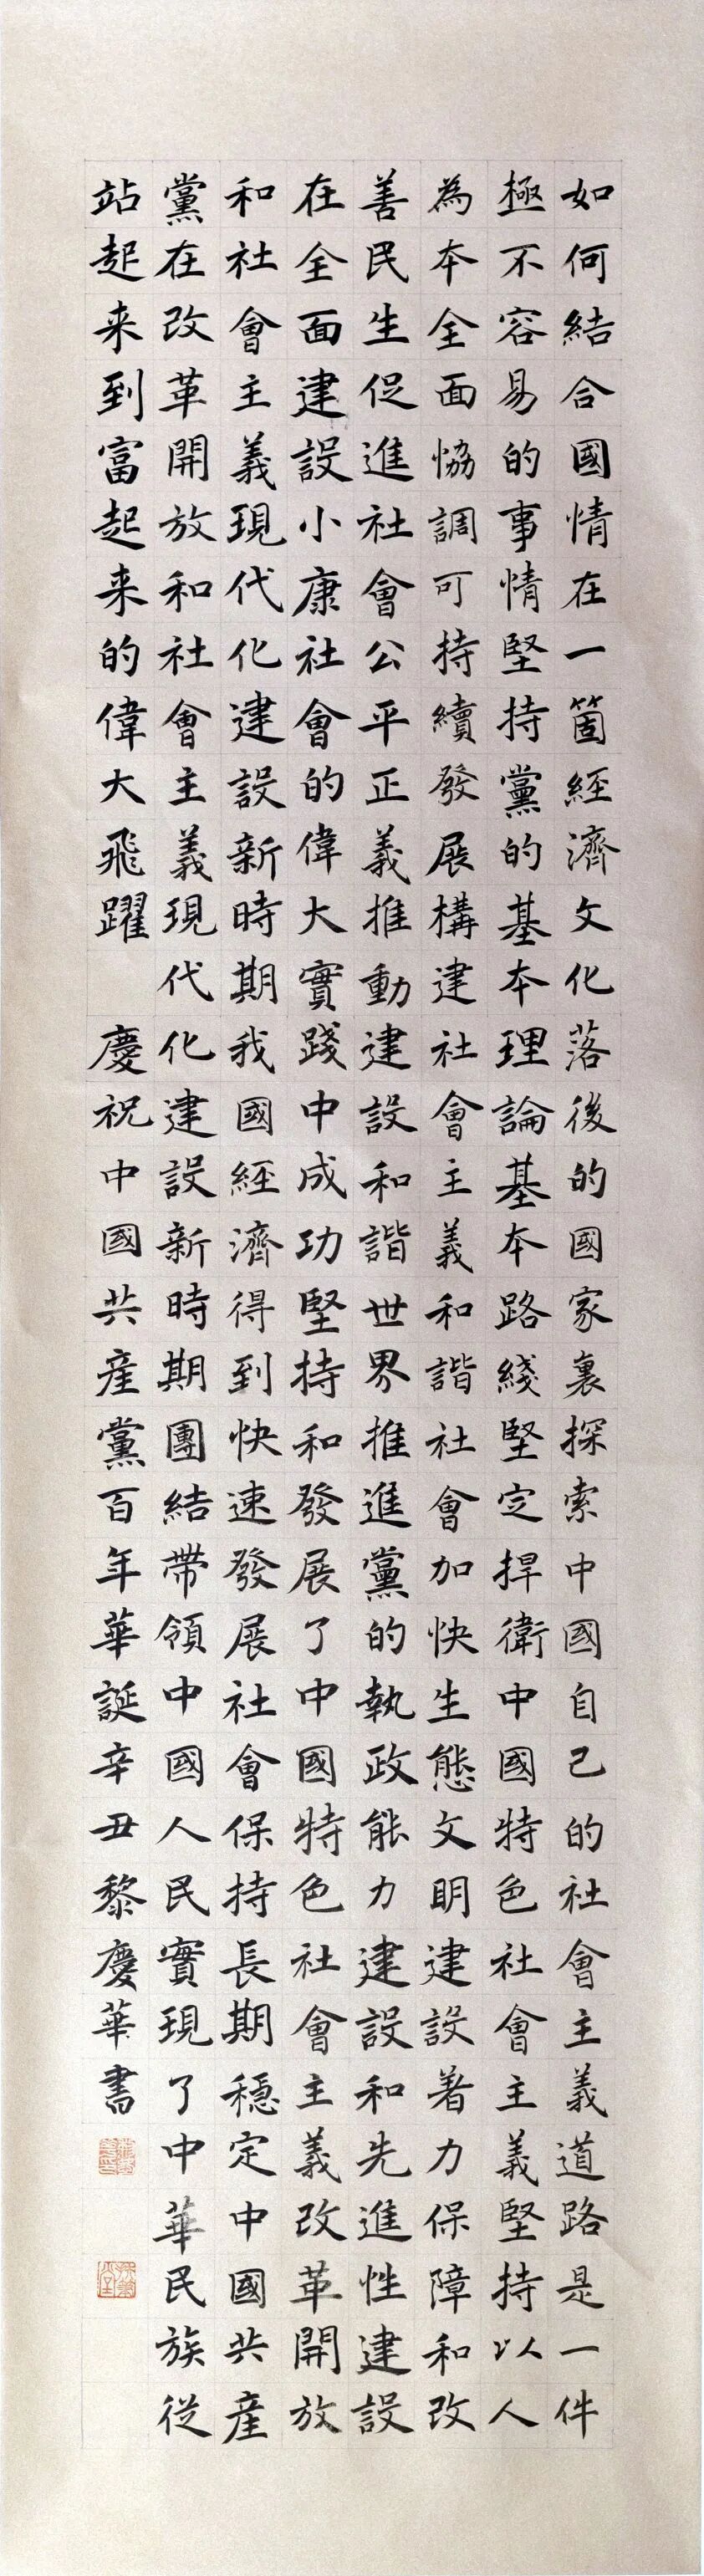 如何結合國情在一箇經濟文化落後的國家裏探索中國自己的社會主義道路是一件
極不容易的事情堅持黨的基本理論基本路綫堅定捍衛中國特色社會主義堅持以人
為本全面協調可持續發展構建社會主義和諧社會加快生態文明建設著力保障和改
善民生促進社會公平正義推動建設和諧世界推進黨的執政能力建設和先進性建設
在全面建設小康社會的偉大實踐中成功堅持和發展了中國特色社會主義改革開放
和社會主義現代化建設新時期我國經濟得到快速發展社會保持長期穩定中國共産
黨在改革開放和社會主義現代化建設新時期團結帶領中國人民實現了中華民族從
站起来到富起来的偉大飛躍 慶祝中國共産黨百年華誕辛丑黎慶華書